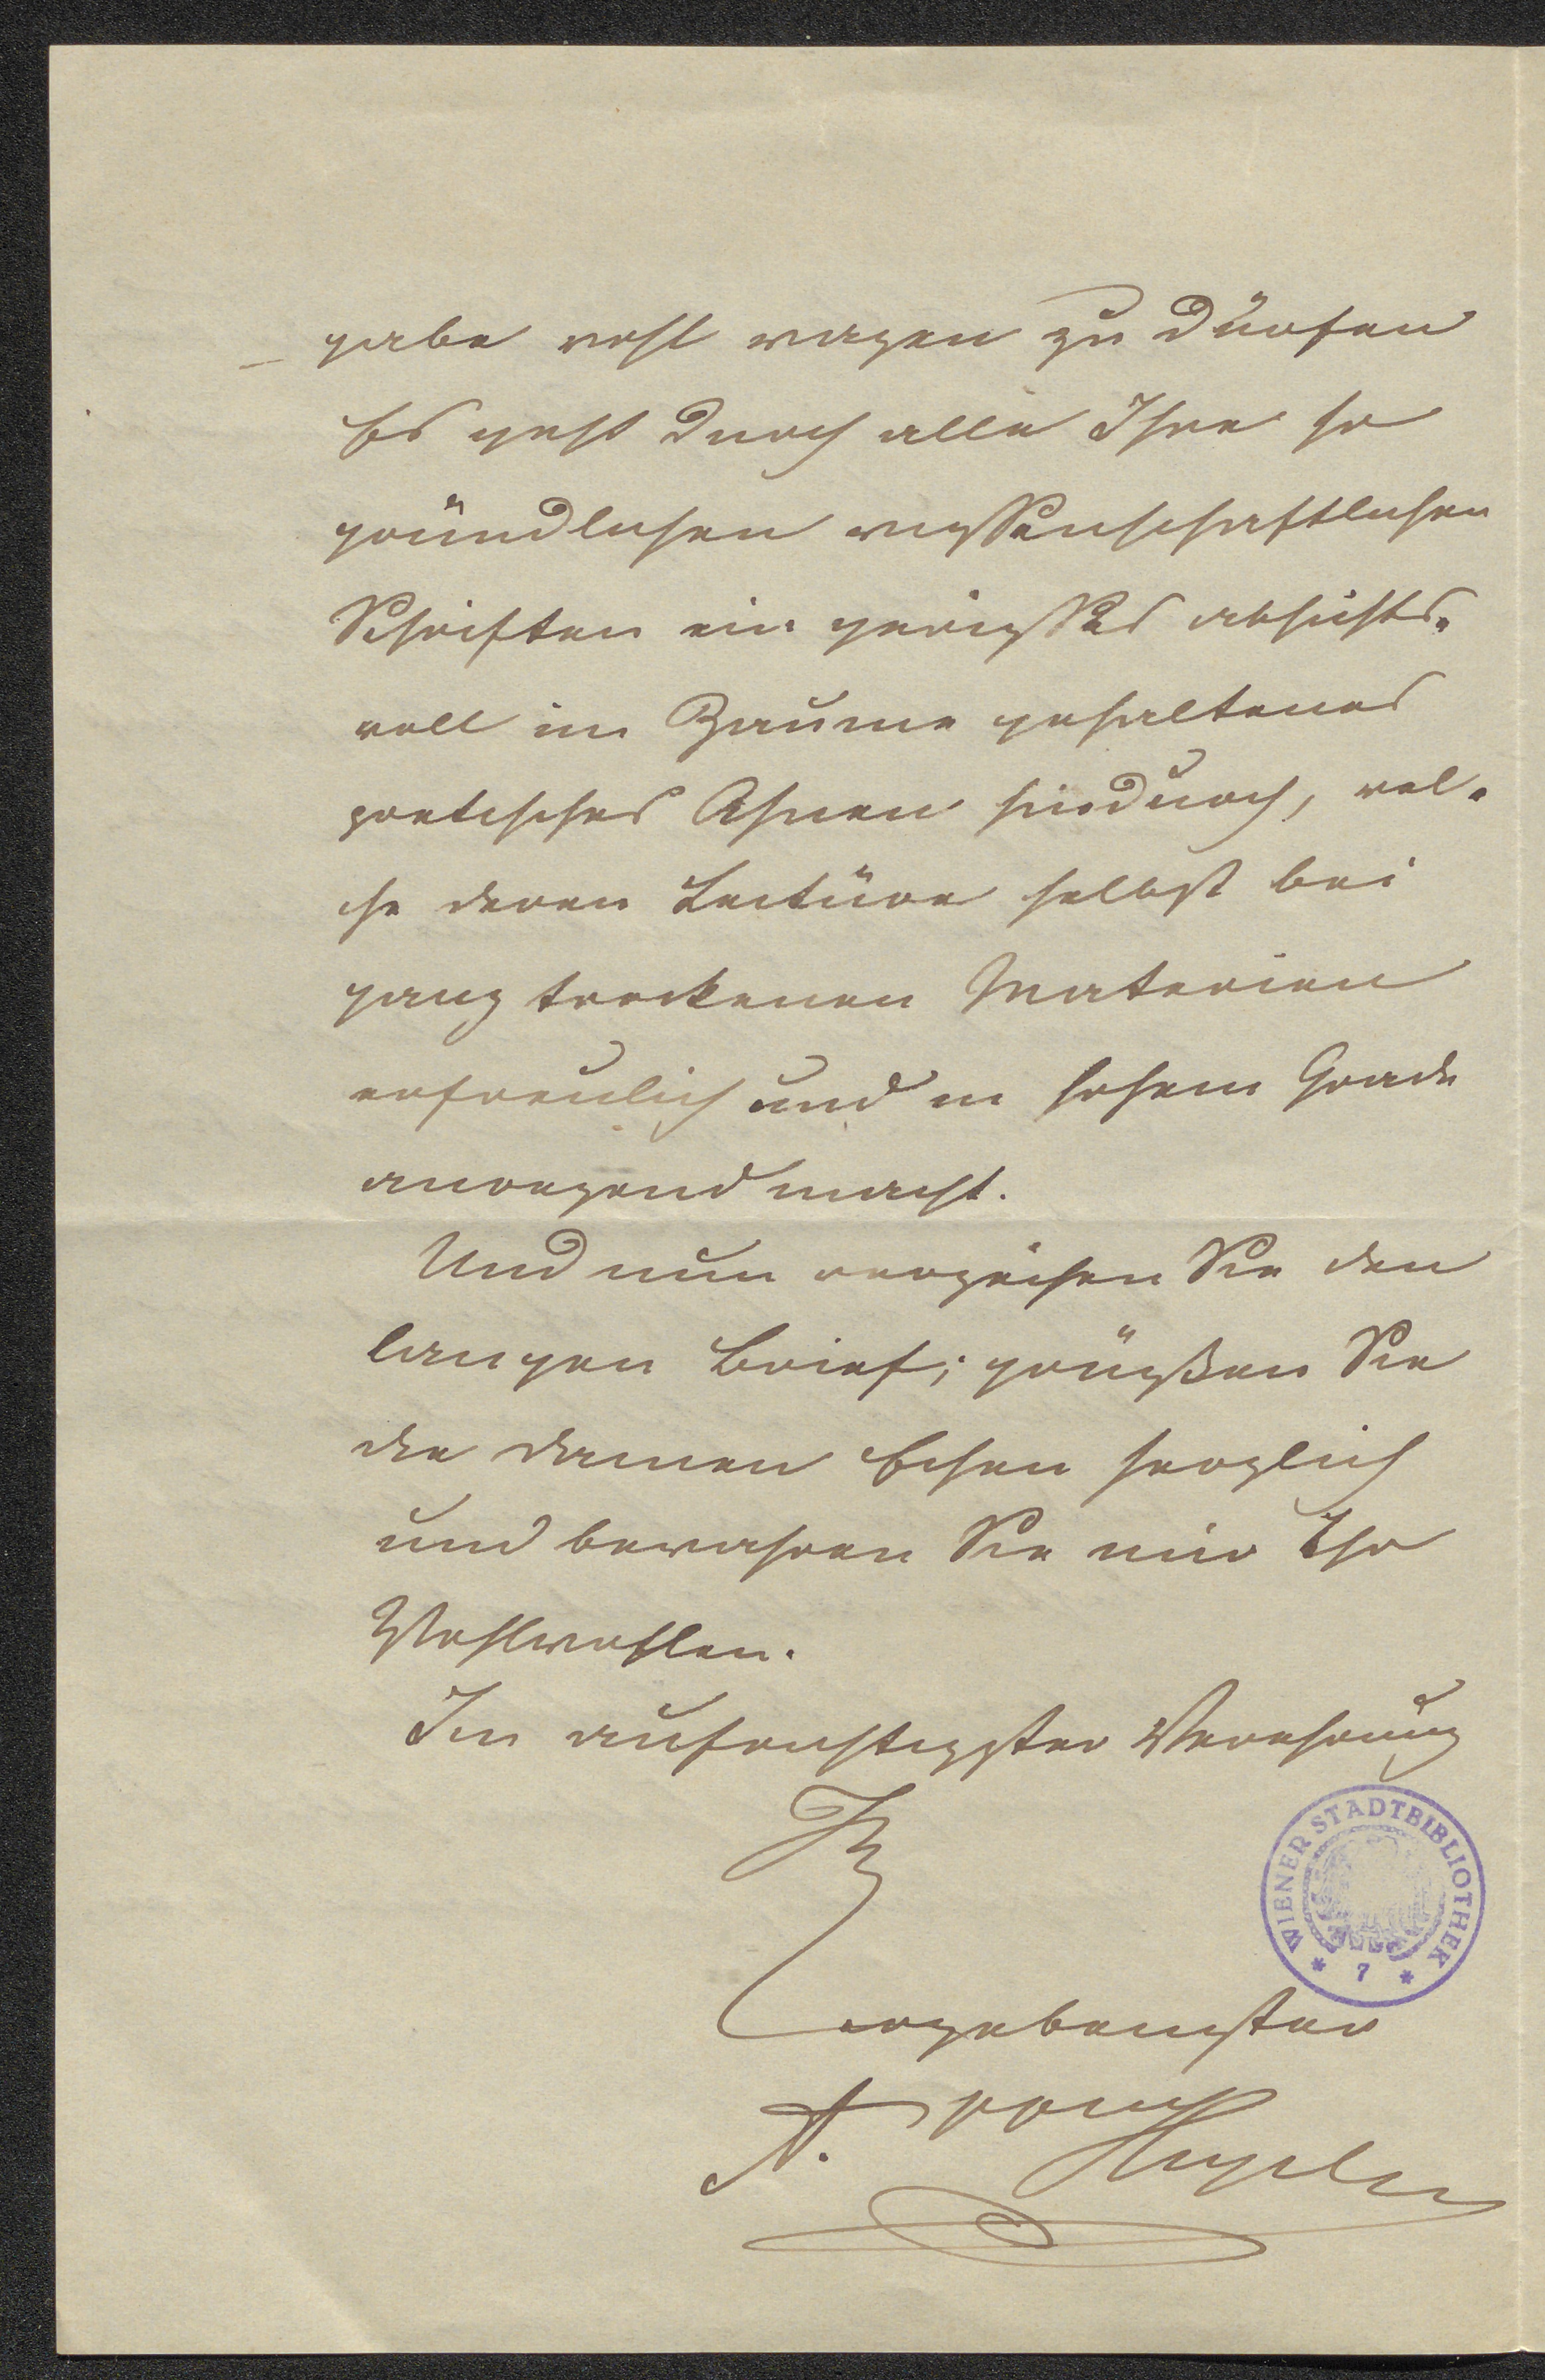 – gabe wohl wagen zu dürfen
Es geht durch alle Ihre so
gründlichen wissenschaftlichen
Schriften ein gewisses absichts-
voll im Zaume gehaltenes
poetisches Ahnen hindurch, wel-
che deren Lectüre selbst bei
ganz trockenen Materien
erfreulich und in hohem Grade
anregend macht.
Und nun verzeihen Sie den
langen Brief; grüßen Sie
die Damen Exner herzlich
und bewahren Sie mir Ihr
Wohlwollen.
In aufrichtigster Verehrung
Ihr
ergebenster
A.
WIENER STADTBIBLIOTHEK
* 7 *